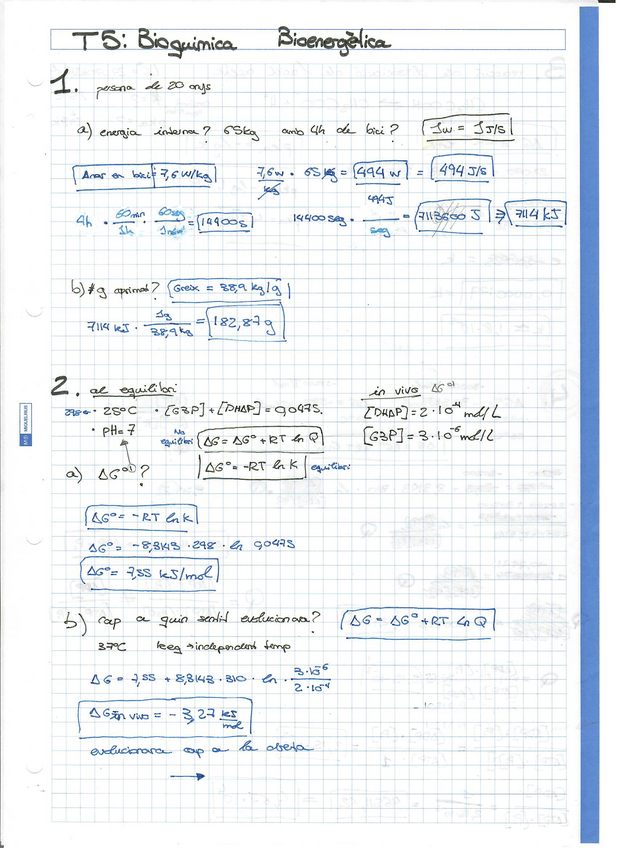 T5: Bioquímica Bioenergètica
1. persona de 20 anys
a) energia interna? 65kg amb 4h de bici? 1w = 1 J/s
Anar en bici = 7,6 w/kg 7,6 w/kg · 65 kg = 494 w = 494 J/s
4h · 60min/1h · 60seg/1min = 14400 s 14400 seg · 494J/seg = 7113600 J ⇒ 7114 kJ
b) #g aprimat? Greix = 38,9 kg/g
7114 kJ · 1g/38,9 kg = 182,87 g
2. al equilibri in vivo ΔG°'
298 · 25°C · [G3P] ÷ [DHAP] = 0,0475. [DHAP] = 2·10⁻⁴ mol/L
· pH = 7 No equilibri ΔG = ΔG° + RT ln Q [G3P] = 3·10⁻⁶ mol/L
a) ΔG°'? ΔG° = -RT ln K equilibri
ΔG° = -RT ln K
ΔG° = -8,3143 · 298 · ln 0,0475
ΔG° = 7,55 kJ/mol
b) cap a quin sentit evolucionara? ΔG = ΔG° + RT ln Q
37°C keq → independent temp
ΔG = 7,55 + 8,3143 · 310 · ln · 3·10⁻⁶/2·10⁻⁴
ΔG in vivo = -3,27 kJ/mol
evolucionara cap a la dreta
→
MIQUELRIUS